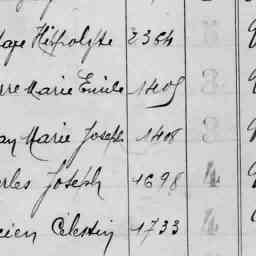 Hippolyte 2364 3
rre Marie Emile 1405 3
an Marie Joseph 1408 3
rles Joseph 1698 4
cien Celestin 1733 4